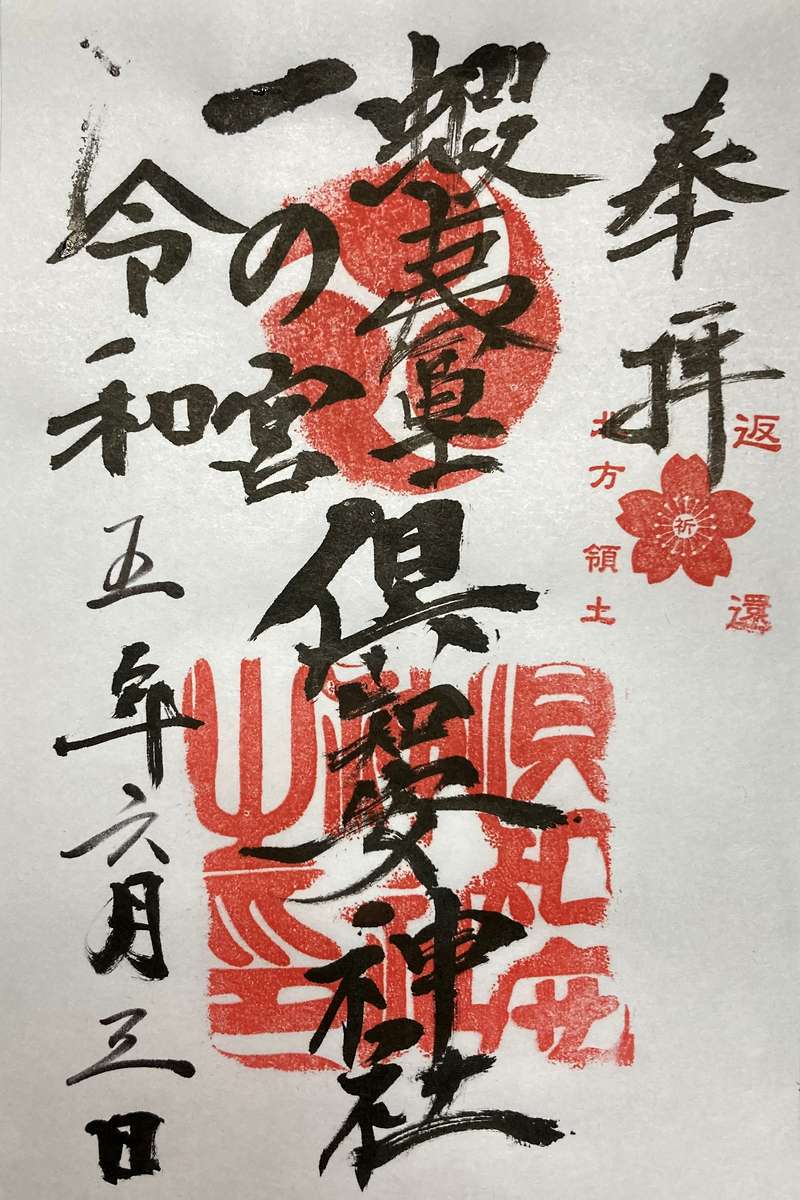 奉拝
返還
祈
北方領土
蝦夷冨士
倶知安神社
一の宮
令和五年六月三日
倶知安
神社
之印